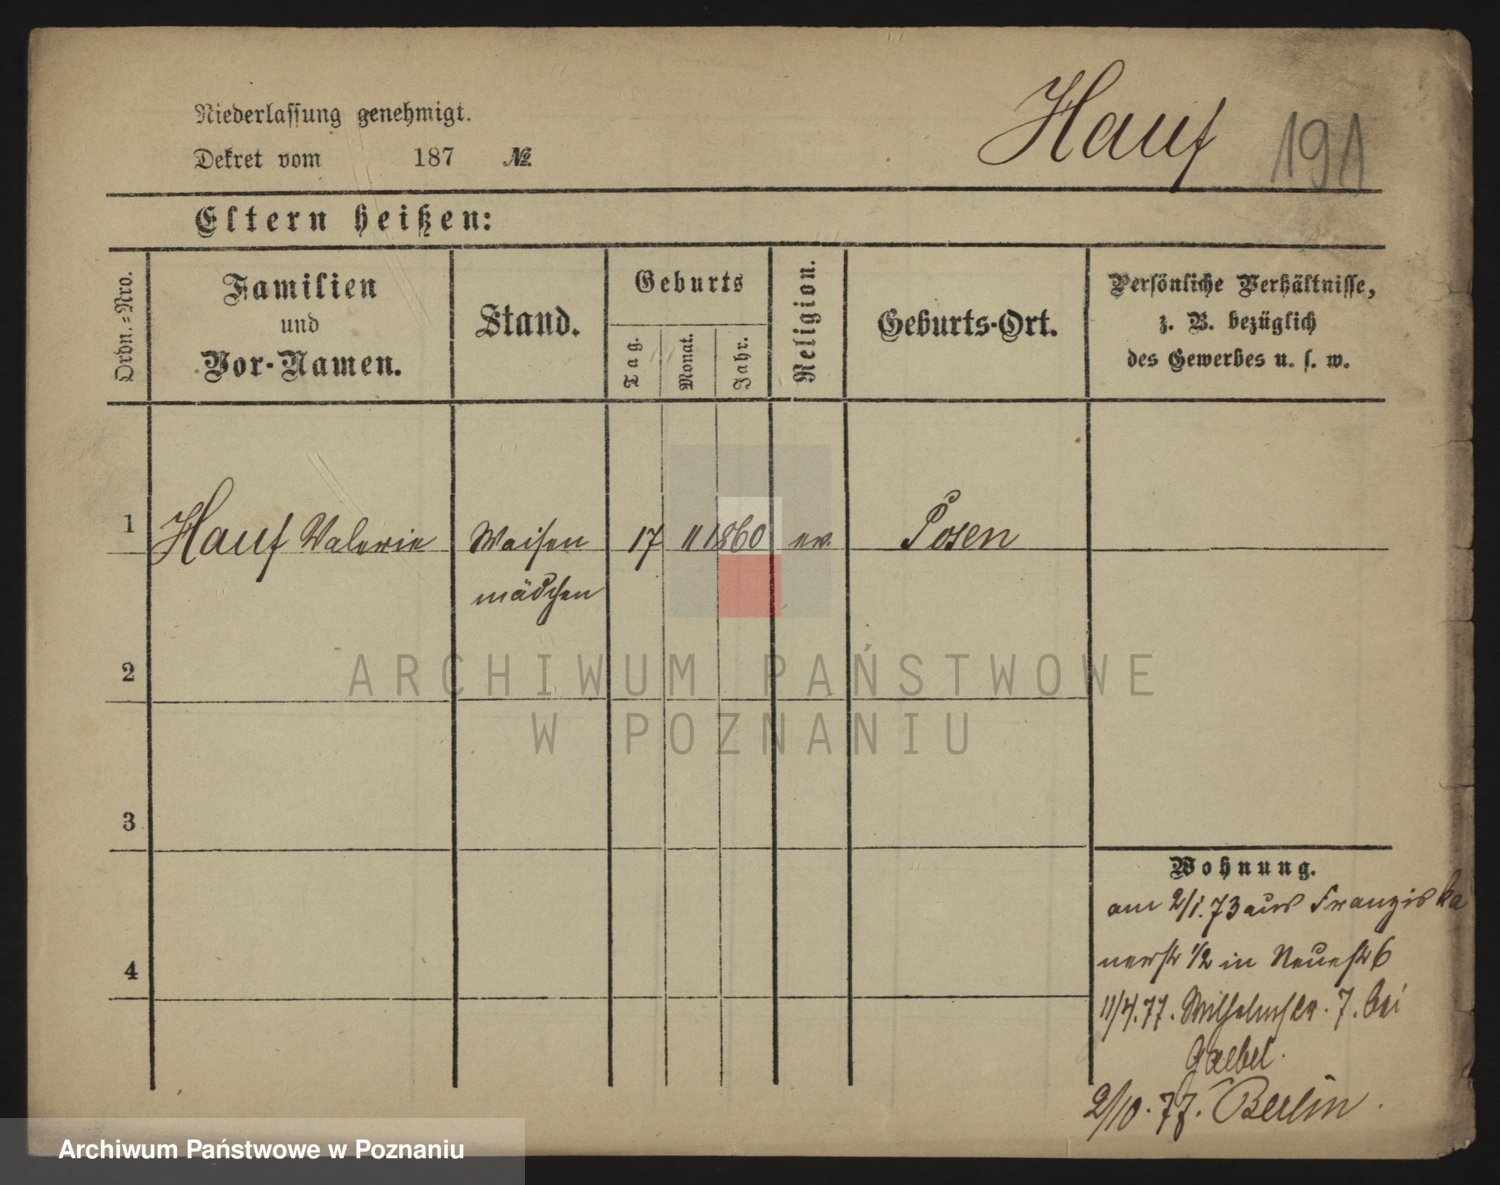 Niederlassung genehmigt.
Dekret vom 187 №
Hauf
191
Eltern heißen:
Ordn.-Nro.
Familien und Vor-Namen.
Stand.
Geburts
Tag.
Monat.
Jahr.
Religion.
Geburts-Ort.
Persönliche Verhältnisse,
z. B. bezüglich
des Gewerbes u. s. w.
1 Hauf Valerie Waisen 17 11 1860 ev. Posen
mädchen
2
3
4
Wohnung.
am 2/1.73 aus Franziska
nerstr 1/2 in Neuestr 6
11/4.77. Wilhelmstr. 7. bei
Gaebel.
2/10.77. Berlin.
ARCHIWUM PAŃSTWOWE
W POZNANIU
Archiwum Państwowe w Poznaniu